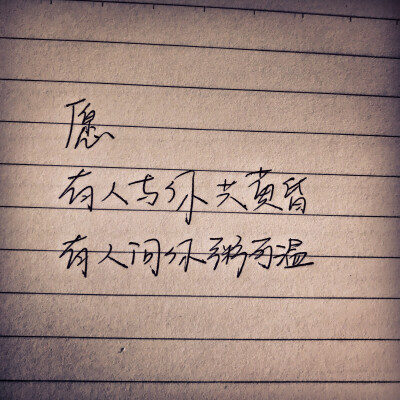 愿
有人与你共黄昏
有人问你粥可温